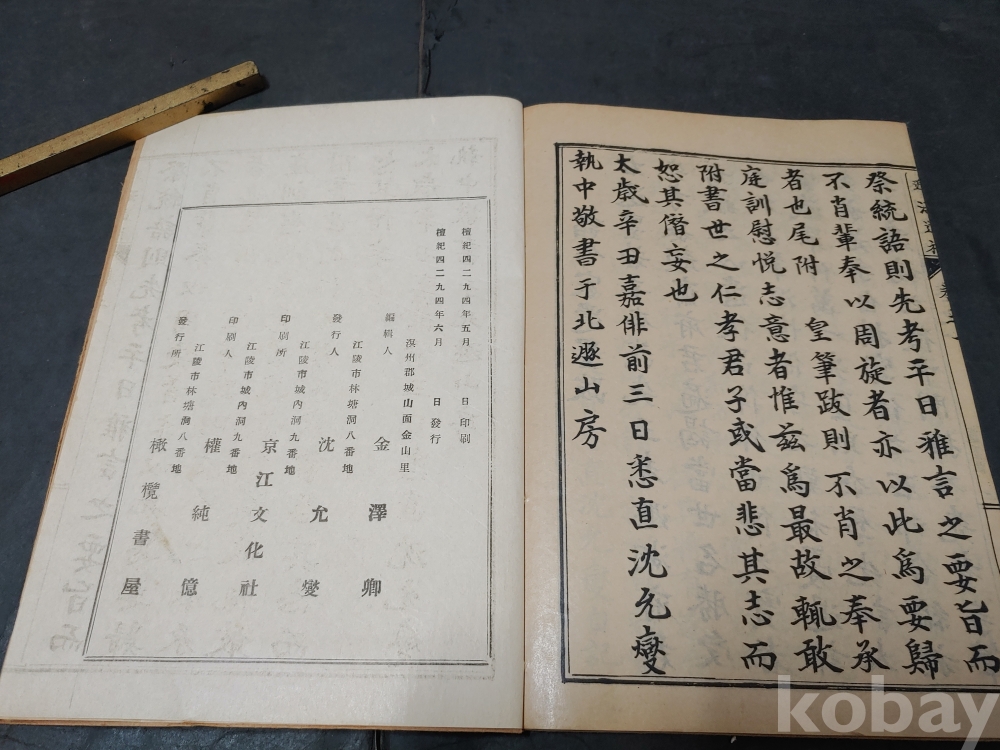 祭統語則先考平日雅言之要旨而
不肖輩奉以周旋者亦以此爲要歸
者也尾附 皇筆跋則不肖之奉承
庭訓慰悦志意者惟玆爲最故輒敢
附書世之仁孝君子或當悲其志而
恕其僭妄也
太歲辛丑嘉俳前三日悉直沈允燮
執中敬書于北遯山房
檀紀四二九四年五月 日印刷
檀紀四二九四年六月 日發行
溟州郡城山面金山里
編輯人 金澤卿
江陵市林塘洞八番地
發行人 沈允燮
江陵市城內洞九番地
印刷所 京江文化社
江陵市城內洞九番地
印刷人 權純億
江陵市林塘洞八番地
發行所 橄欖書屋
kobay